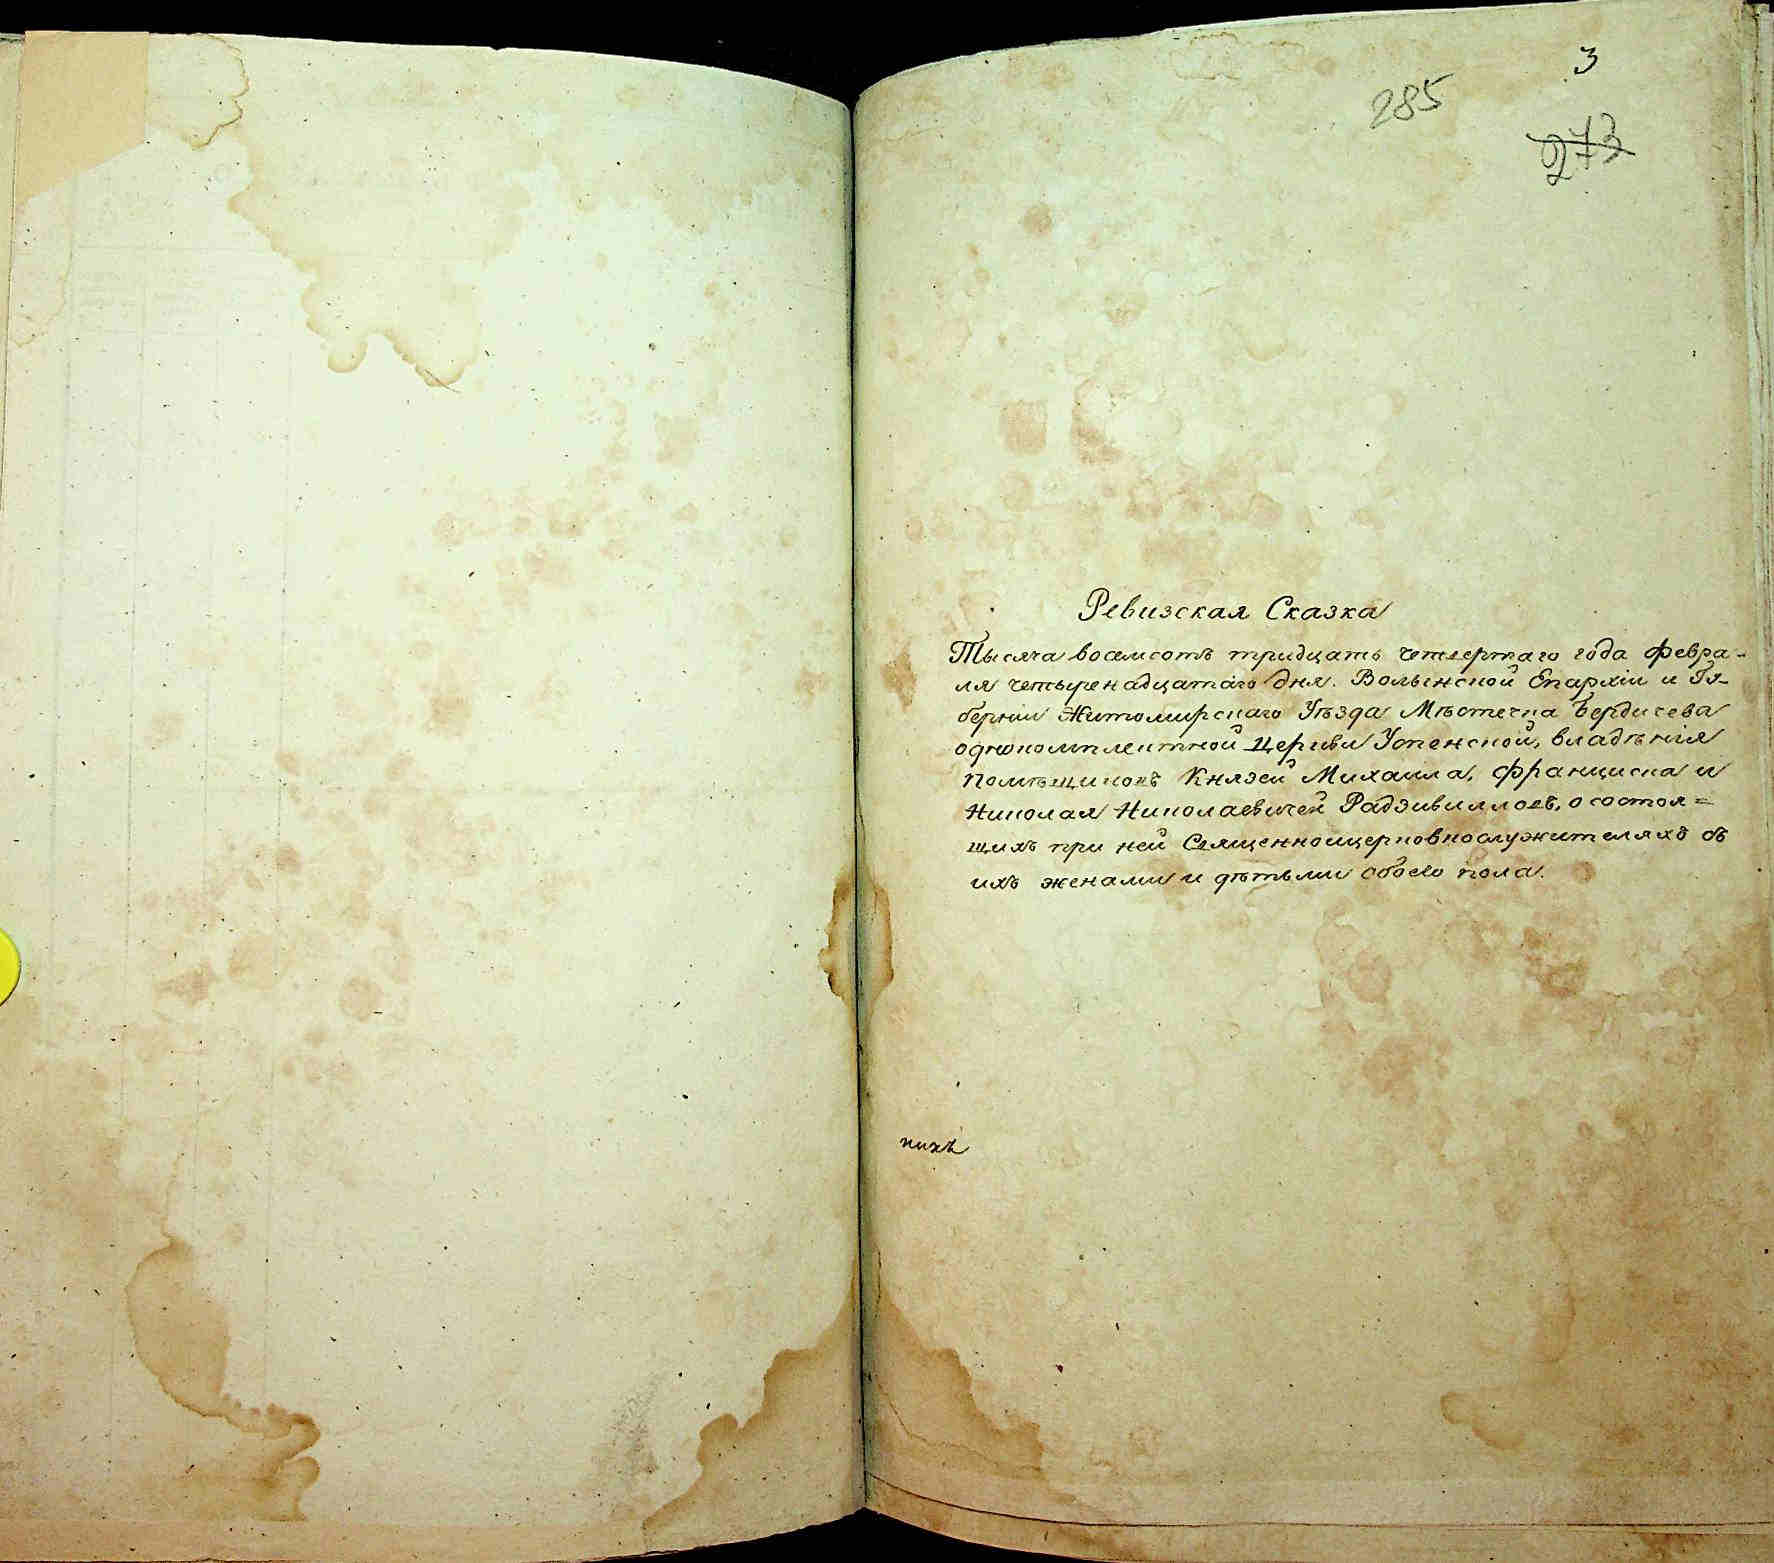 3
285
273
Ревизская Сказка
Тысяча восемсотъ тридцать четвертаго года февра-
ля четыренадцатаго дня. Волынской Епархіи и Гу-
берніи Житомирскаго Уѣзда Мѣстечка Бердичева
однокомплектной Церкви Успенской, владѣнія
Помѣщиковъ Князей Михаила, Франциска и
Николая Николаевичей Радзивилловъ, о состоя=
щихъ при ней Священноицерковнослужителяхъ съ
ихъ женами и дѣтьми обоего пола.